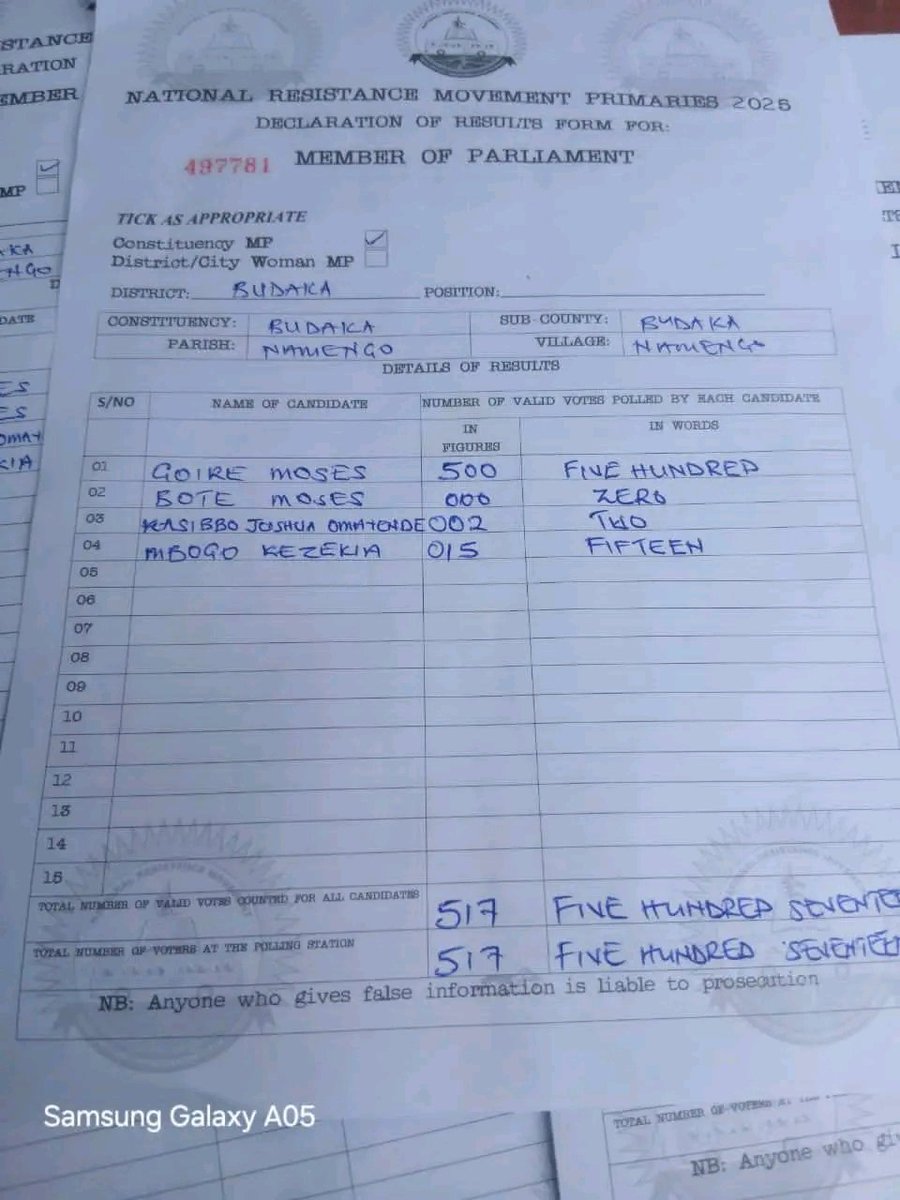 STANCE
RATION
EMBER
MP
NATIONAL RESISTANCE MOVEMENT PRIMARIES 2025
DECLARATION OF RESULTS FORM FOR:
497781 MEMBER OF PARLIAMENT
TICK AS APPROPRIATE
Constituency MP
District/City Woman MP
DISTRICT: BUDAKA POSITION:
CONSTITUENCY: BUDAKA SUB-COUNTY: BUDAKA
PARISH: NAMENGO VILLAGE: NAMENGO
DETAILS OF RESULTS
S/NO NAME OF CANDIDATE NUMBER OF VALID VOTES POLLED BY EACH CANDIDATE
IN FIGURES IN WORDS
01 GOIRE MOSES 500 FIVE HUNDRED
02 BOTE MOSES 000 ZERO
03 KASIBBO JOSHUA OMATENDE 002 TWO
04 MBOGO KEZEKIA 015 FIFTEEN
05
06
07
08
09
10
11
12
13
14
15
TOTAL NUMBER OF VALID VOTES COUNTED FOR ALL CANDIDATES 517 FIVE HUNDRED SEVENTE
TOTAL NUMBER OF VOTERS AT THE POLLING STATION 517 FIVE HUNDRED SEVENTEEN
NB: Anyone who gives false information is liable to prosecution
Samsung Galaxy A05
TOTAL NUMBER OF VOTERS
NB: Anyone who gi